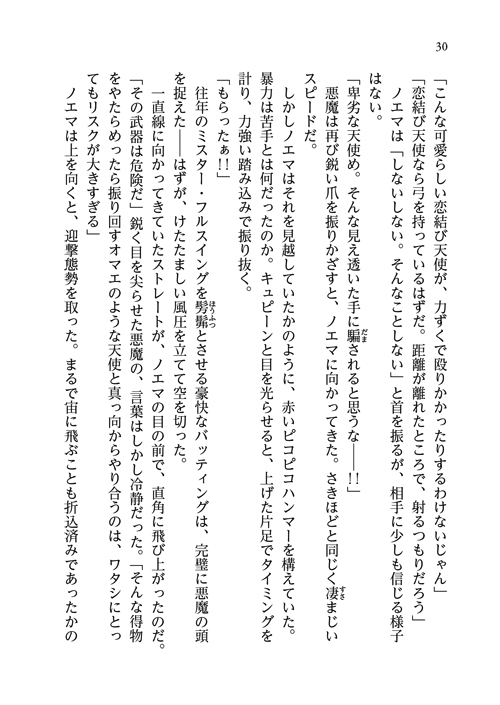 30
「こんな可愛らしい恋結び天使が、力ずくで殴りかかったりするわけないじゃん」
「恋結び天使なら弓を持っているはずだ。距離が離れたところで、射るつもりだろう」
ノエマは「しないしない。そんなことしない」と首を振るが、相手に少しも信じる様子
はない。
「卑劣な天使め。そんな見え透いた手に騙されると思うな――!!」
悪魔は再び鋭い爪を振りかざすと、ノエマに向かってきた。さきほどと同じく凄まじい
スピードだ。
しかしノエマはそれを見越していたかのように、赤いピコピコハンマーを構えていた。
暴力は苦手とは何だったのか。キュピーンと目を光らせると、上げた片足でタイミングを
計り、力強い踏み込みで振り抜く。
「もらったぁ!!」
往年のミスター・フルスイングを髣髴とさせる豪快なバッティングは、完璧に悪魔の頭
を捉えた――はずが、けたたましい風圧を立てて空を切った。
一直線に向かってきていたストレートが、ノエマの目の前で、直角に飛び上がったのだ。
「その武器は危険だ」鋭く目を尖らせた悪魔の、言葉はしかし冷静だった。「そんな得物
をやたらめったら振り回すオマエのような天使と真っ向からやり合うのは、ワタシにとっ
てもリスクが大きすぎる」
ノエマは上を向くと、迎撃態勢を取った。まるで宙に飛ぶことも折込済みであったかの